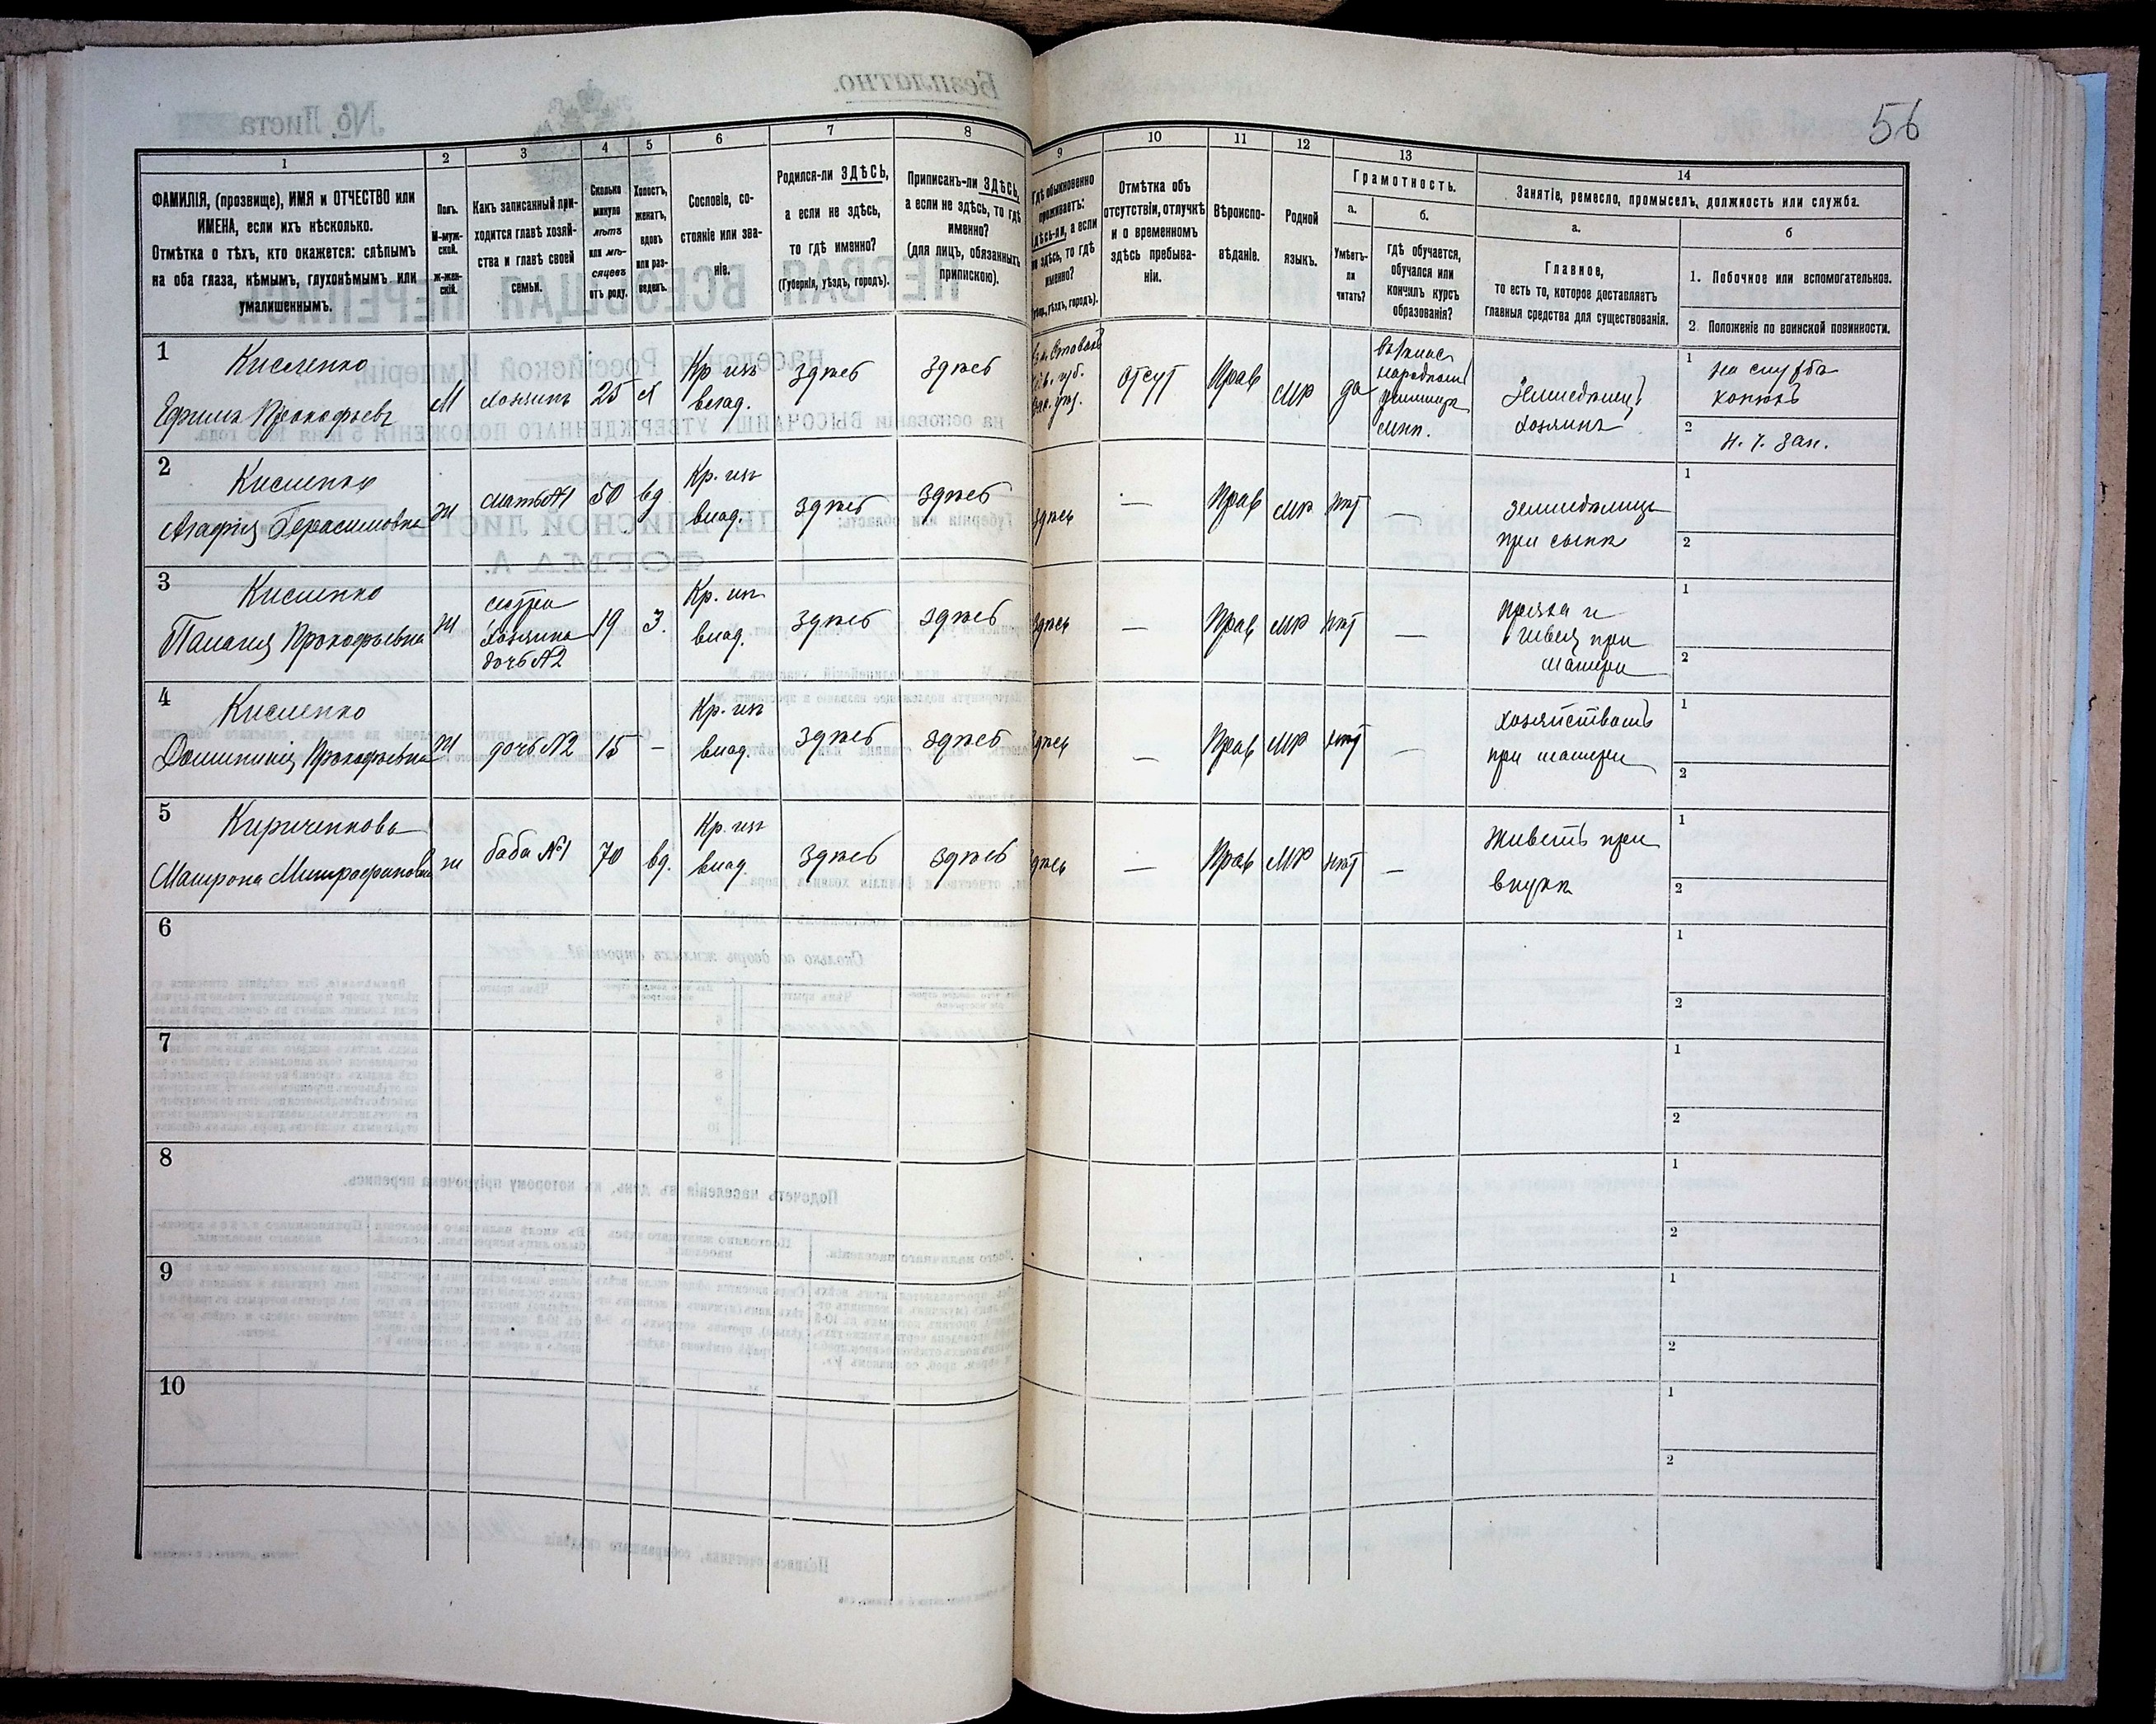 56
1
2
3
4
5
6
7
8
9
10
11
12
13
14
ФАМИЛІЯ, (прозвище), ИМЯ и ОТЧЕСТВО или
ИМЕНА, если ихъ нѣсколько.
Отмѣтка о тѣхъ, кто окажется: слѣпымъ
на оба глаза, нѣмымъ, глухонѣмымъ или
умалишеннымъ.
Полъ.
М-муж-
ской.
ж-жен-
скій.
Какъ записанный при-
ходится главѣ хозяй-
ства и главѣ своей
семьи.
Сколько
минуло
лѣтъ
или мѣ-
сяцевъ
отъ роду.
Холостъ,
женатъ,
вдовъ
или раз-
веденъ.
Сословіе, со-
стояніе или зва-
ніе.
Родился-ли ЗДѢСЬ,
а если не здѣсь,
то гдѣ именно?
(Губернія, уѣздъ, городъ).
Приписанъ-ли ЗДѢСЬ,
а если не здѣсь, то гдѣ
именно?
(для лицъ, обязанныхъ
припискою).
Гдѣ обыкновенно
проживаетъ:
здѣсь-ли, а если
не здѣсь, то гдѣ
именно?
уѣздъ, городъ).
Отмѣтка объ
отсутствіи, отлучкѣ
и о временномъ
здѣсь пребыва-
ніи.
Вѣроиспо-
вѣданіе.
Родной
языкъ.
Грамотность.
а.
б.
Умѣетъ-
ли
читать?
гдѣ обучается,
обучался или
кончилъ курсъ
образованія?
Занятіе, ремесло, промыселъ, должность или служба.
а.
б
Главное,
то есть то, которое доставляетъ
главныя средства для существованія.
1. Побочное или вспомогательное.
2. Положеніе по воинской повинности.
1
Кисленко
Ефимъ Прокофьевъ
М
хозяинъ
25
х
Кр. изъ
влад.
здѣсь
здѣсь
отсут
Прав
мр
да
народномъ
Земледѣлецъ
хозяинъ
1
на службѣ
2
2
Кисленко
Агафія Герасимовна
ж
мать №1
50
вд
Кр. изъ
влад.
здѣсь
здѣсь
здѣсь
—
Прав
мр
нѣт
—
земледѣлица
при сынѣ
1
2
3
Кисленко
Палагія Прокофьевна
ж
сестра
хозяина
дочь №2
19
з.
Кр. изъ
влад.
здѣсь
здѣсь
здѣсь
—
Прав
мр
нѣт
—
пряха и
швея при
матери
1
2
4
Кисленко
Доминикія Прокофьевна
ж
дочь №2
15
–
Кр. изъ
влад.
здѣсь
здѣсь
здѣсь
—
Прав
мр
нѣт
—
при матери
1
2
5
Кириченкова
Матрона Митрофановна
ж
баба №1
70
вд.
Кр. изъ
влад.
здѣсь
здѣсь
здѣсь
—
Прав
мр
нѣт
—
живетъ при
внукѣ
1
2
6
1
2
7
1
2
8
1
2
9
1
2
10
1
2